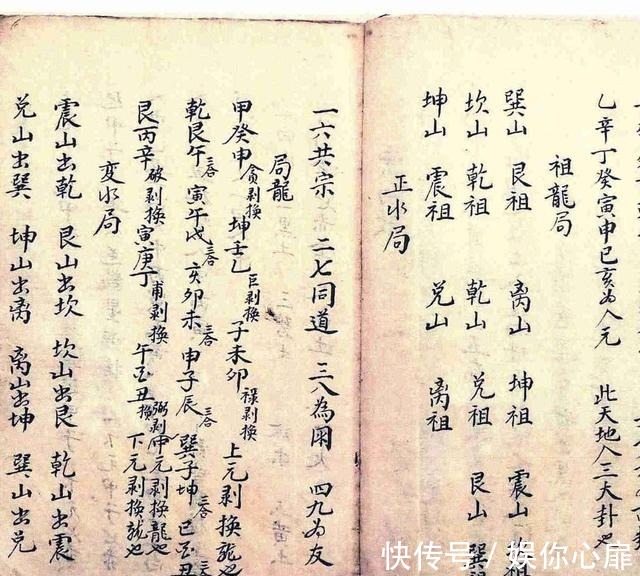 乙辛丁癸寅申巳亥為人元 此天地人三大卦也
祖龍局
巽山 艮祖 离山 坤祖 震山
坎山 乾祖 乾山 兑祖 艮山 巽
坤山 震祖 兑山 离祖
正水局
一六共宗 二七同道 三八為朋 四九為友
局龍
甲癸申貪剥換 坤壬乙巨剥換 子未卯祿剥換 上元剥換龍也
乾艮午 寅午戌 亥卯未 申子辰 巽子坤 巳酉丑
艮丙辛破剥換 寅庚丁甫剥換 午酉丑弼剥換 中元剥換龍也 下元剥換龍也
变水局
震山出乾 艮山出坎 坎山出艮 乾山出震
兑山出巽 坤山出离 离山出坤 巽山出兑
快传号 / 娱你心扉